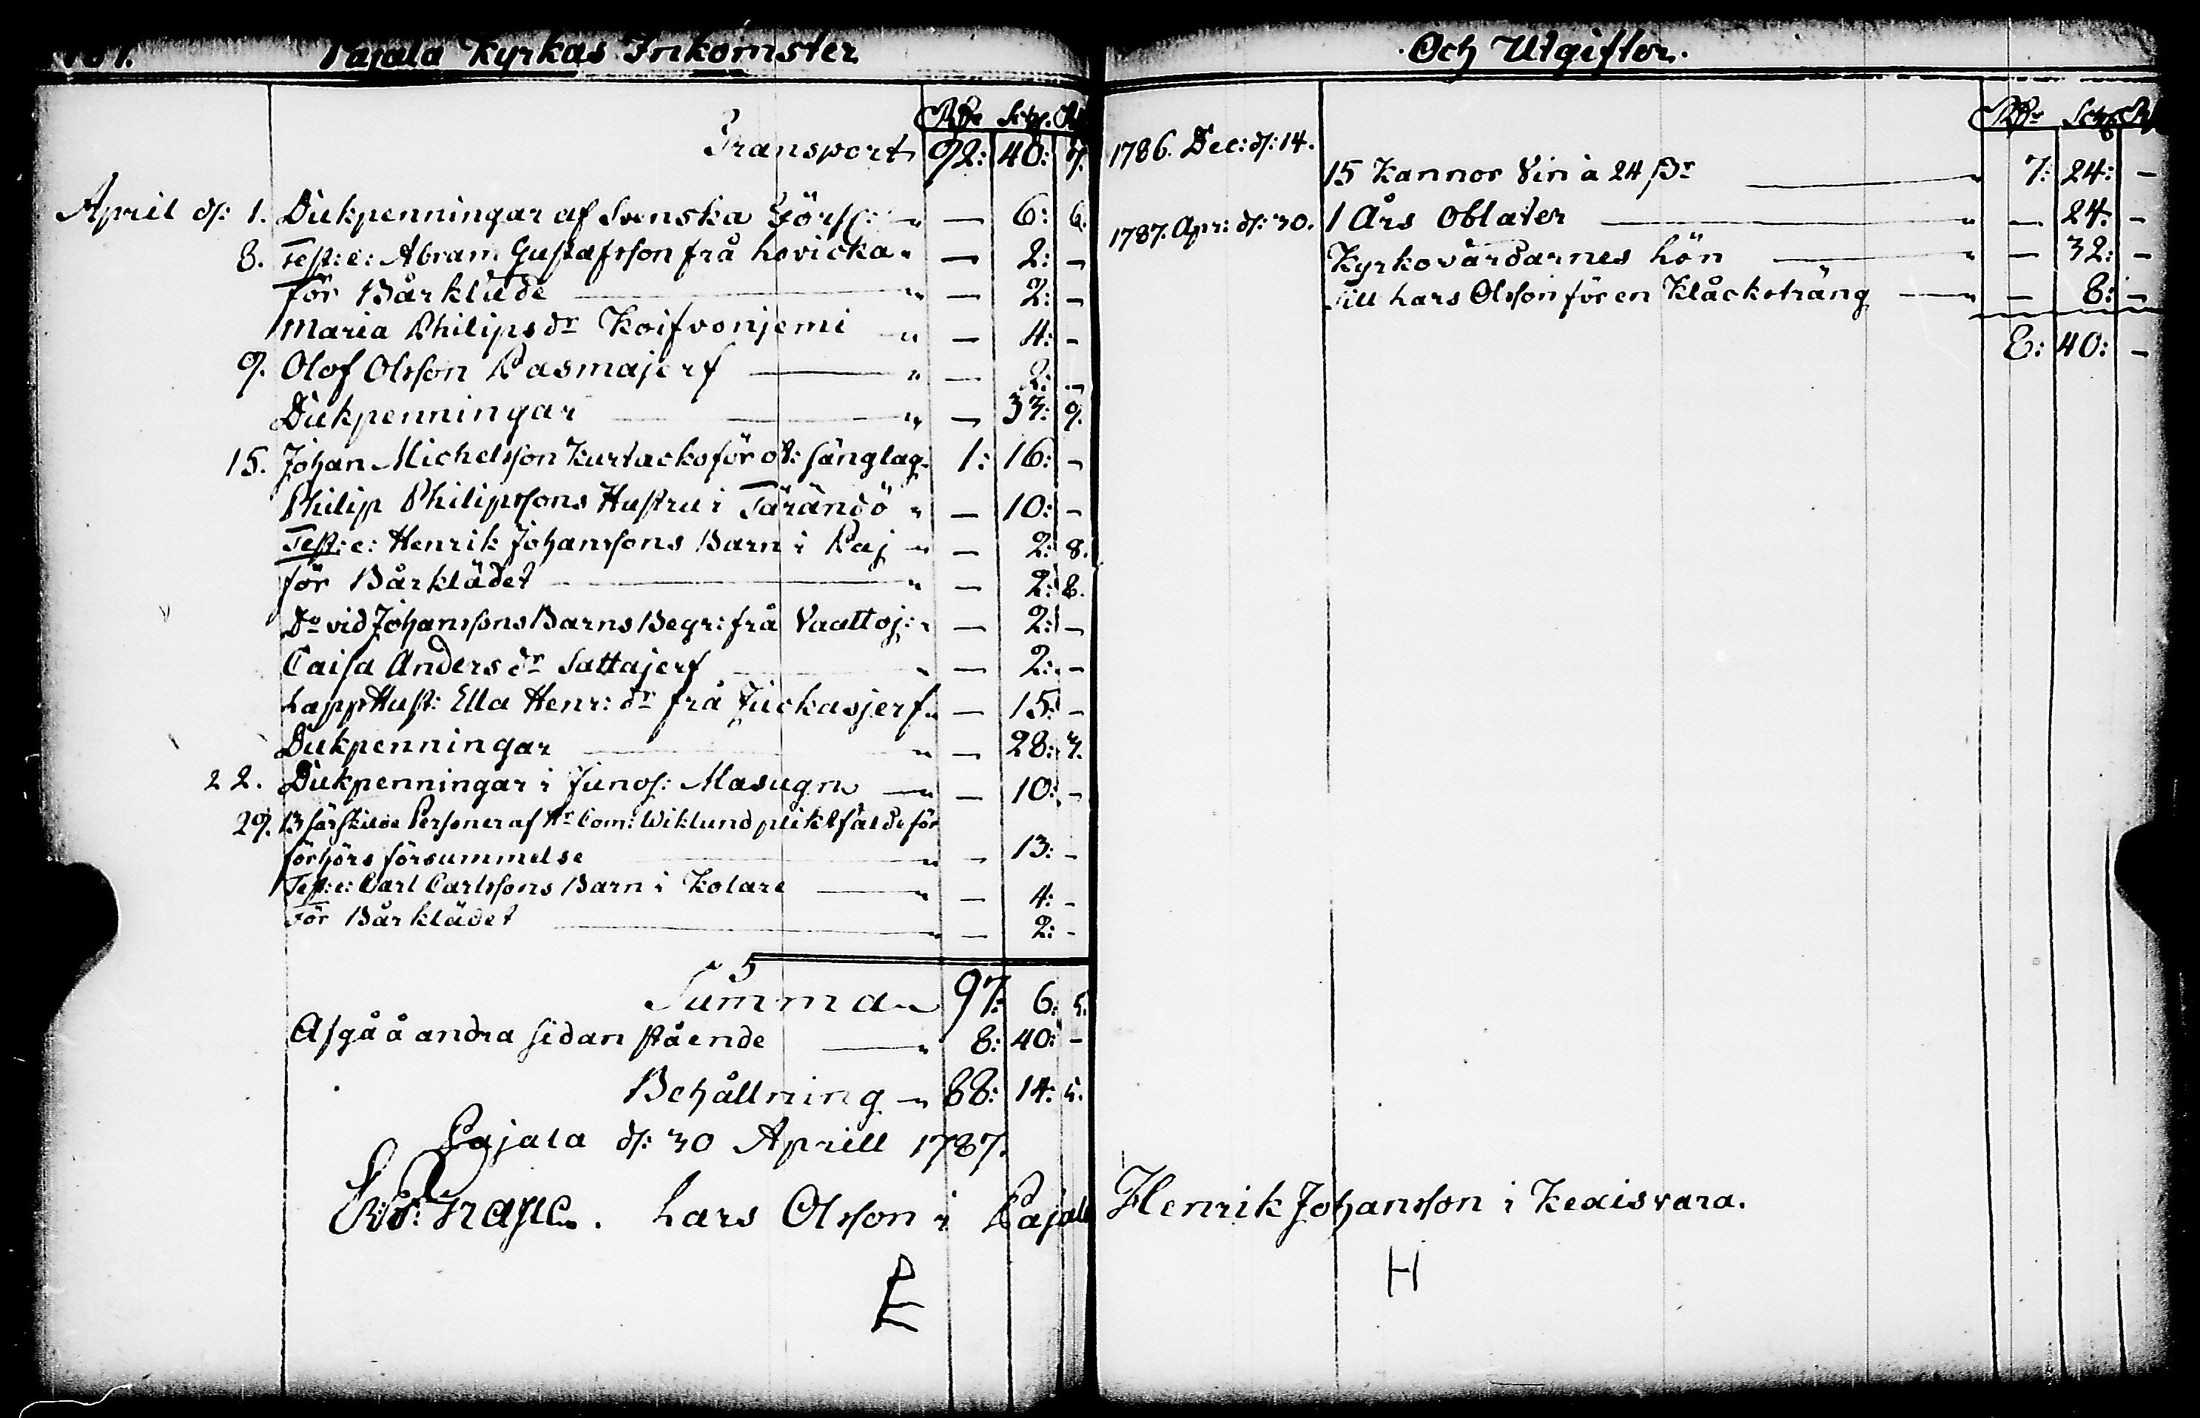 Pajala Kyrkas Inkomster
Rdr Sch. R
Transport 92: 40: 7.
April d: 1. Dukpenningar af Svenska " — 6: 6.
8. Test: e: Abram Gustafsson frå Lovicka " — 2: —
för Bårkläde " — 2: —
Maria Philipsdr Koifvonjemi " — 4: —
9. Olof Olsson Pasmajerf " — 2: —
Dukpenningar " — 33: 9.
15. Johan Michelsson Kurtacko för ot: sänglag " 1: 16: —
Philip Philipssons Hustru i Tärändö " — 10: —
Test: e: Henrik Johanssons Barn i Paj " — 2: 8.
för Bårklädet " — 2: 8.
Do vid Johanssons Barns Begr: frå Vaattoj: " — 2: —
Caisa Andersdr Sattajerf " — 2: —
LappHust: Ella Henr: dr frå Juckasjerf " — 15: —
Dukpenningar " — 28: 3.
22. Dukpenningar i Junos: Masugn " — 10: —
29. 13 särskilde Personer af Hr Com: Wiklund pliktfälde för
förhörs försummelse " — 13: —
Test: e: Carl Carlssons Barn i Kolare " — 4: —
För Bårklädet " — 2: —
Summa " 97: 6: 5.
Afgå å andra sidan stående " 8: 40: —
Behållning " 88: 14: 5.
Pajala d: 30 Aprill 1787.
Lars Olsson i Pajala
Och Utgifter.
Rdr Sch. R
1786. Dec: d: 14.
15 Kannor Vin à 24 sr " 7: 24: —
1787. Apr: d: 30. 1 Års Oblater " — 24: —
Kyrkovärdarnes Lön " — 32: —
till Lars Olsson för en Klåcksträng " — 8: —
8: 40: —
Henrik Johansson i Kexisvara.
H